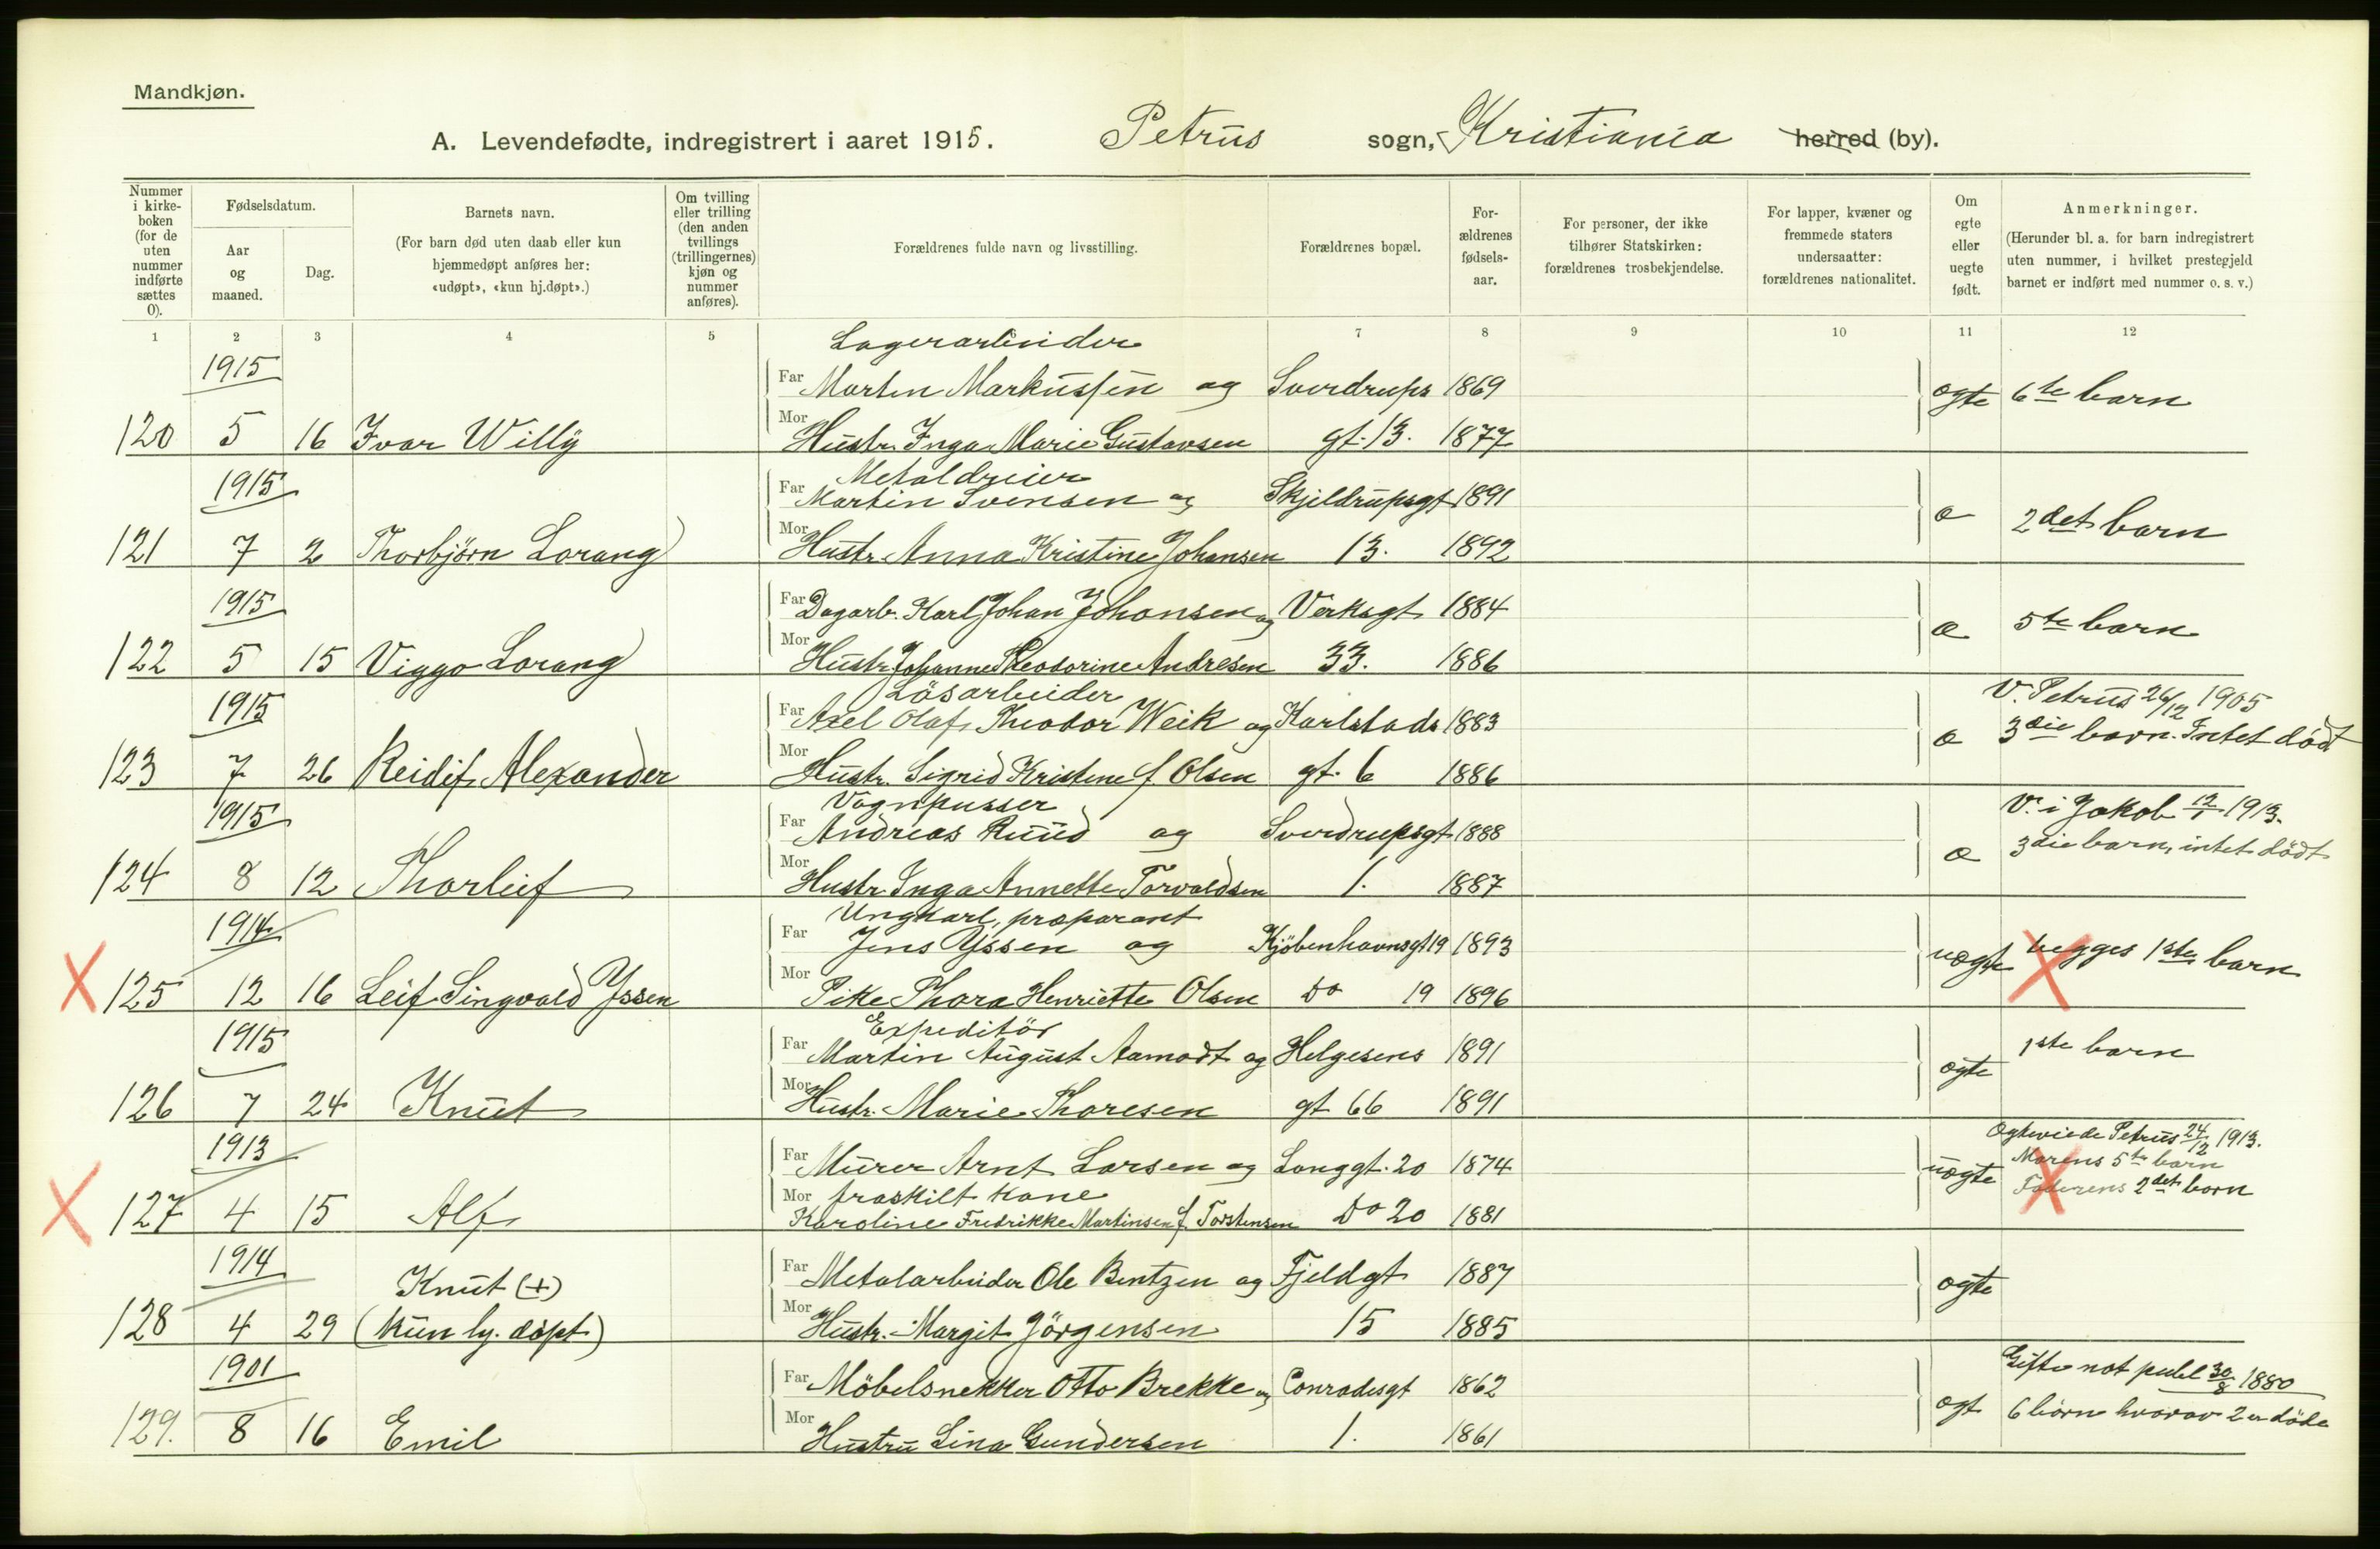 Mandkjøn.
A. Levendefødte, indregistrert i aaret 1915. Petrus sogn, Kristiania herred (by).
Nummer i kirke-boken (for de uten nummer indførte sættes 0).
Fødselsdatum.
Aar og maaned.
Dag.
Barnets navn.
(For barn død uten daab eller kun hjemmedøpt anføres her: «udøpt», «kun hj.døpt».)
Om tvilling eller trilling (den anden tvillings (trillingernes) kjøn og nummer anføres).
Forældrenes fulde navn og livsstilling.
Forældrenes bopæl.
For-ældrenes fødsels-aar.
For personer, der ikke tilhører Statskirken: forældrenes trosbekjendelse.
For lapper, kvæner og fremmede staters undersaatter: forældrenes nationalitet.
Om egte eller uegte født.
Anmerkninger.
(Herunder bl. a. for barn indregistrert uten nummer, i hvilket prestegjeld barnet er indført med nummer o. s. v.)
1 2 3 4 5 6 7 8 9 10 11 12
Lagerarbeider
1915 Far Marten Markussen og Sverdrups 1869 ægte 6te barn
120 5 16 Ivar Willy Mor Hustr. Inga Marie Gustavsen gt. 13. 1877
Metaldreier
1915 Far Martin Svensen og Skjeldrupsgt 1891 æ 2det barn
121 7 2 Thorbjörn Lorang Mor Hustr. Anna Kristine Johansen 13. 1892
1915 Far Dagarb. Karl Johan Johansen og Verksgt 1884 æ 5te barn
122 5 15 Viggo Lorang Mor Hustr. Johanne Theodorine Andresen 33. 1886
Lösarbeider V. Petrus 26/12 1905
1915 Far Axel Olaf Theodor Weik og Karlstads 1883 æ 3die barn. Intet död
123 7 26 Reidif Alexander Mor Hustr. Sigrid Kristene f. Olsen gt. 6 1886
Vognpusser V. i Jakob 12/1 1913.
1915 Far Andreas Ruud og Sverdrupsgt 1888 æ 3die barn, intet dödt
124 8 12 Thorleif Mor Hustr. Inga Annette Torvaldsen 1. 1887
Ungkarl, præparant
1914 Far Jens Yssen og Kjöbenhavnsgt 19 1893 uægte begges 1ste barn
125 12 16 Leif Singvald Yssen Mor Pike Thora Henriette Olsen Do 19 1896
Expeditör
1915 Far Martin August Aamodt og Helgesens 1891 ægte 1ste barn
126 7 24 Knut Mor Hustr. Marie Thoresen gt 66 1891
Ægteviede Petrus 24/12 1913.
1913 Far Murer Arnt Larsen og Langgt. 20 1874 uægte Morens 5te barn
Mor fraskilt kone Faderens 2det barn
127 4 15 Alf Karoline Fredrikke Martinsen f. Torstensen Do 20 1881
1914 Knut (+) Far Metalarbeider Ole Bentzen og Fjeldgt 1887 ægte
128 4 29 (kun hj. döpt) Mor Hustr. Margit Jörgensen 15 1885
Gifte not publ 30/8 1880
1901 Far Möbelsnekker Otto Brekke og Conradisgt 1862 ægt 6 börn hvorav 2 er döde
129. 8 16 Emil Mor Hustru Lina Gundersen 1. 1861